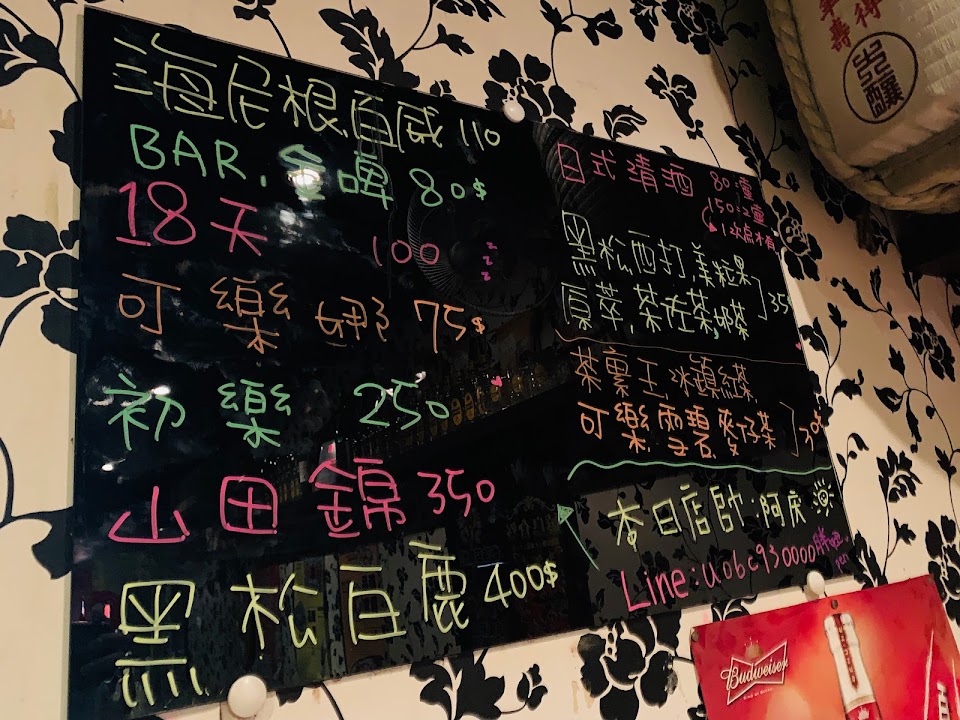 海尼根.百威 110
BAR.金啤 80$
18天 100
可樂娜 75$
初樂 250
山田錦 350
黑松白鹿 400$
日式清酒 80:1壺
150:2壺
1次点才有
黑松西打.美粒果
原萃.茶佐茶.奶茶 35
茶裏王.冰鎮紅茶.
可樂.雪碧.麥仔茶 30
本日店帥:阿庆
Line:u06c930000
Budweiser